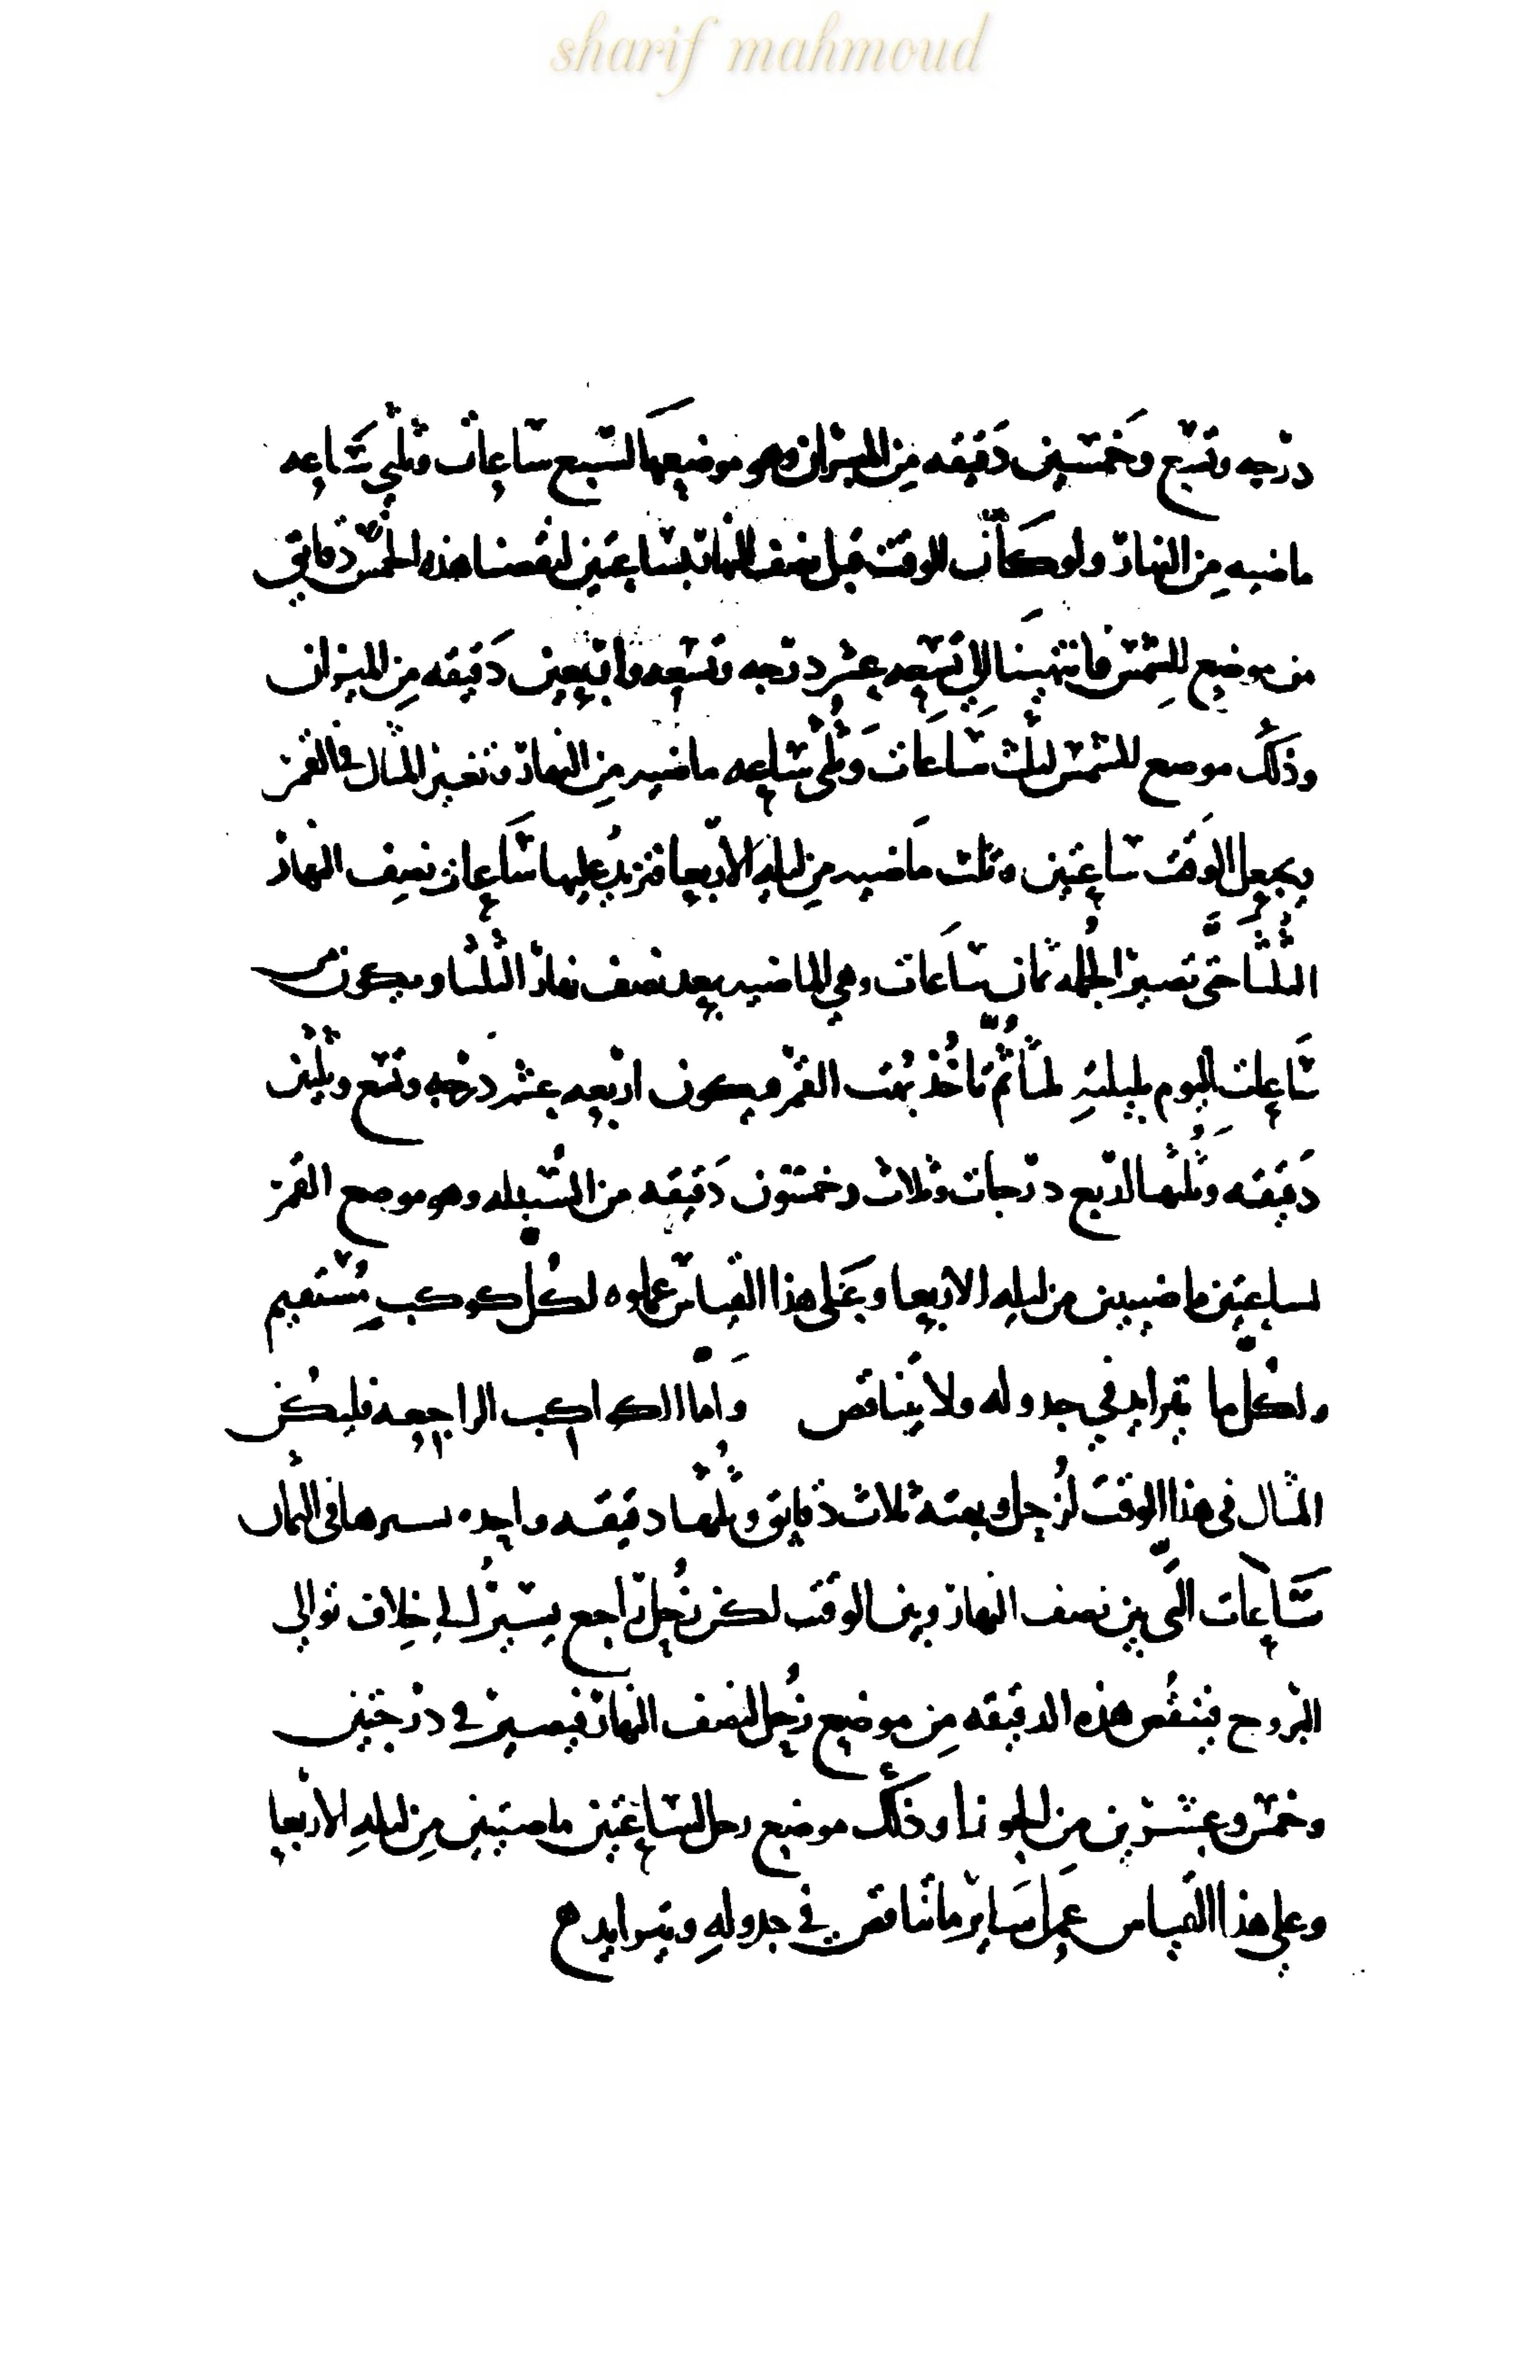 sharif mahmoud
درجه وتسع وخمسين دقيقه من الميزان وهو موضعها لسبع ساعات وثلثي ساعه
ماضيه من النهار ولو كان الوقت قبل نصف النهار بساعتين لنقصنا هذه الخمس دقايق
من موضع الشمس فانتهينا الي تسعه عشر درجه وتسعه واربعين دقيقه من الميزان
وذلك موضع الشمس لثلث ساعات وثلثي ساعه ماضيه من النهار ونغير المثال في القمر
ونجعل الوقت ساعتين وثلث ماضيه من ليله الاربعا فنزيد عليها ساعات نصف النهار
الثلثا حتى تصير الجمله ثمان ساعات وهي الماضيه بعد نصف نهار الثلثا ويكون من
ساعات اليوم بليلته ثلثا ثم ناخذ بهت القمر ويكون اربعه عشر درجه وتسع وثلثين
دقيقه وثلثها اربع درجات وثلاث وخمسون دقيقه من السنبله وهو موضع القمر
لساعتين ماضيين من ليله الاربعا وعلى هذا القياس عملوه لكل كوكب مستقيم
ولكل ما يتزايد في جدوله ولا يتناقص واما الكواكب الراجعه فليكن
المثال في هذا الوقت لزحل وبهته ثلاث دقايق وثلثها دقيقه واحده سيرها في الثمان
ساعات التي بين نصف النهار وبين الوقت لكن زحل راجع يسير الى خلاف توالي
البروج فننقص هذه الدقيقه من موضع زحل لنصف النهار فيصير في درجتين
وخمس وعشرين من الجوزا وذلك موضع زحل لساعتين ماضيتين من ليله الاربعا
وعلى هذا القياس عمل ساير ما تناقص في جدوله ويتزايد ه